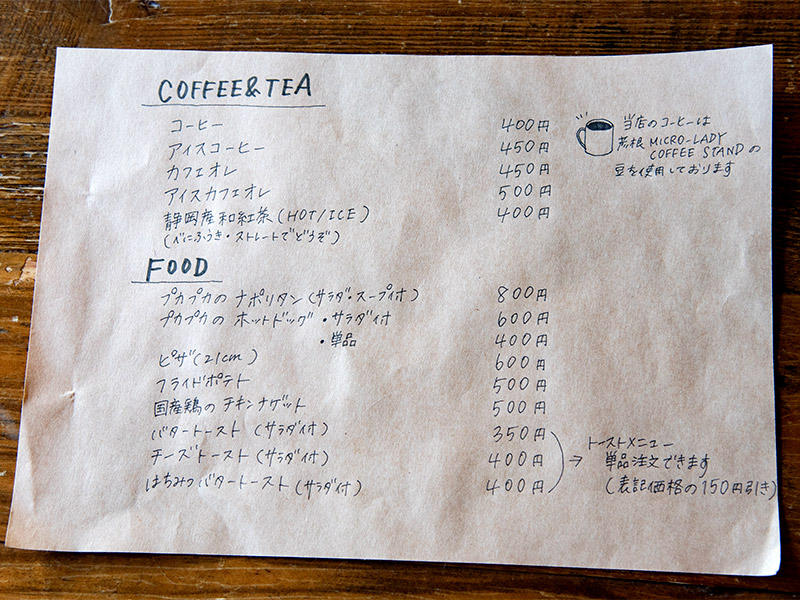 COFFEE&TEA
コーヒー 400円
アイスコーヒー 450円
カフェオレ 450円
アイスカフェオレ 500円
静岡産和紅茶(HOT/ICE) 400円
(べにふうき・ストレートでどうぞ)
当店のコーヒーは
彦根 MICRO-LADY
COFFEE STANDの
豆を使用しております
FOOD
プカプカの ナポリタン(サラダ・スープ付) 800円
プカプカの ホットドッグ ・サラダ付 600円
・単品 400円
ピザ(21cm) 600円
フライドポテト 500円
国産鶏の チキンナゲット 500円
バタートースト (サラダ付) 350円
チーズトースト (サラダ付) 400円
はちみつバタートースト (サラダ付) 400円
→ トーストメニュー
単品注文できます
(表記価格の150円引き)